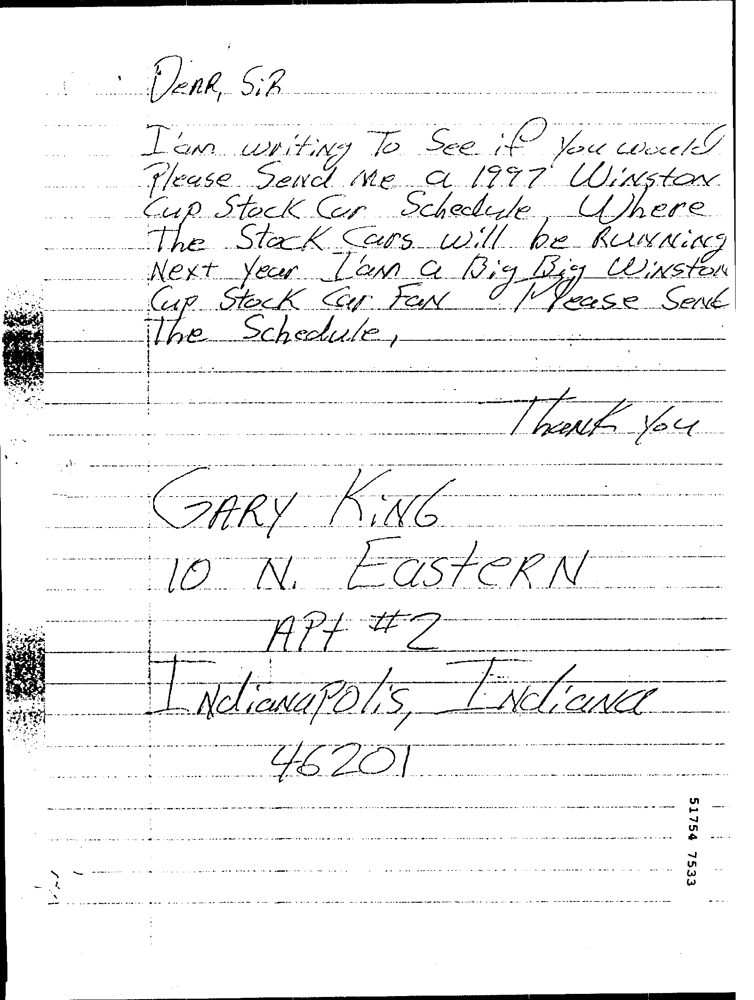 Dear, Sir
I'am writing To See if you would
Please Send Me a 1997 Winston
Cup Stock Car Schedule, Where
The Stock Cars will be Running
Next Year I'am a Big Big Winston
Cup Stock Car Fan Please Sent
The Schedule,
Thank You
GARY KiNG
10 N. EasteRN
APt #2
INdiaNaPolis, INdiaNa
46201
51754 7533